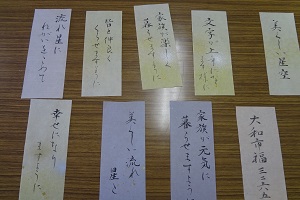 美しい星空
文字が上手に
なりますように
家族が楽しく
暮らせますように
皆と仲良く
くらせますように
流れ星に
ねがいをこめて
大和市福
家族が元気に
暮らせますように
美しい流れ
星を
幸せになり
ますように。